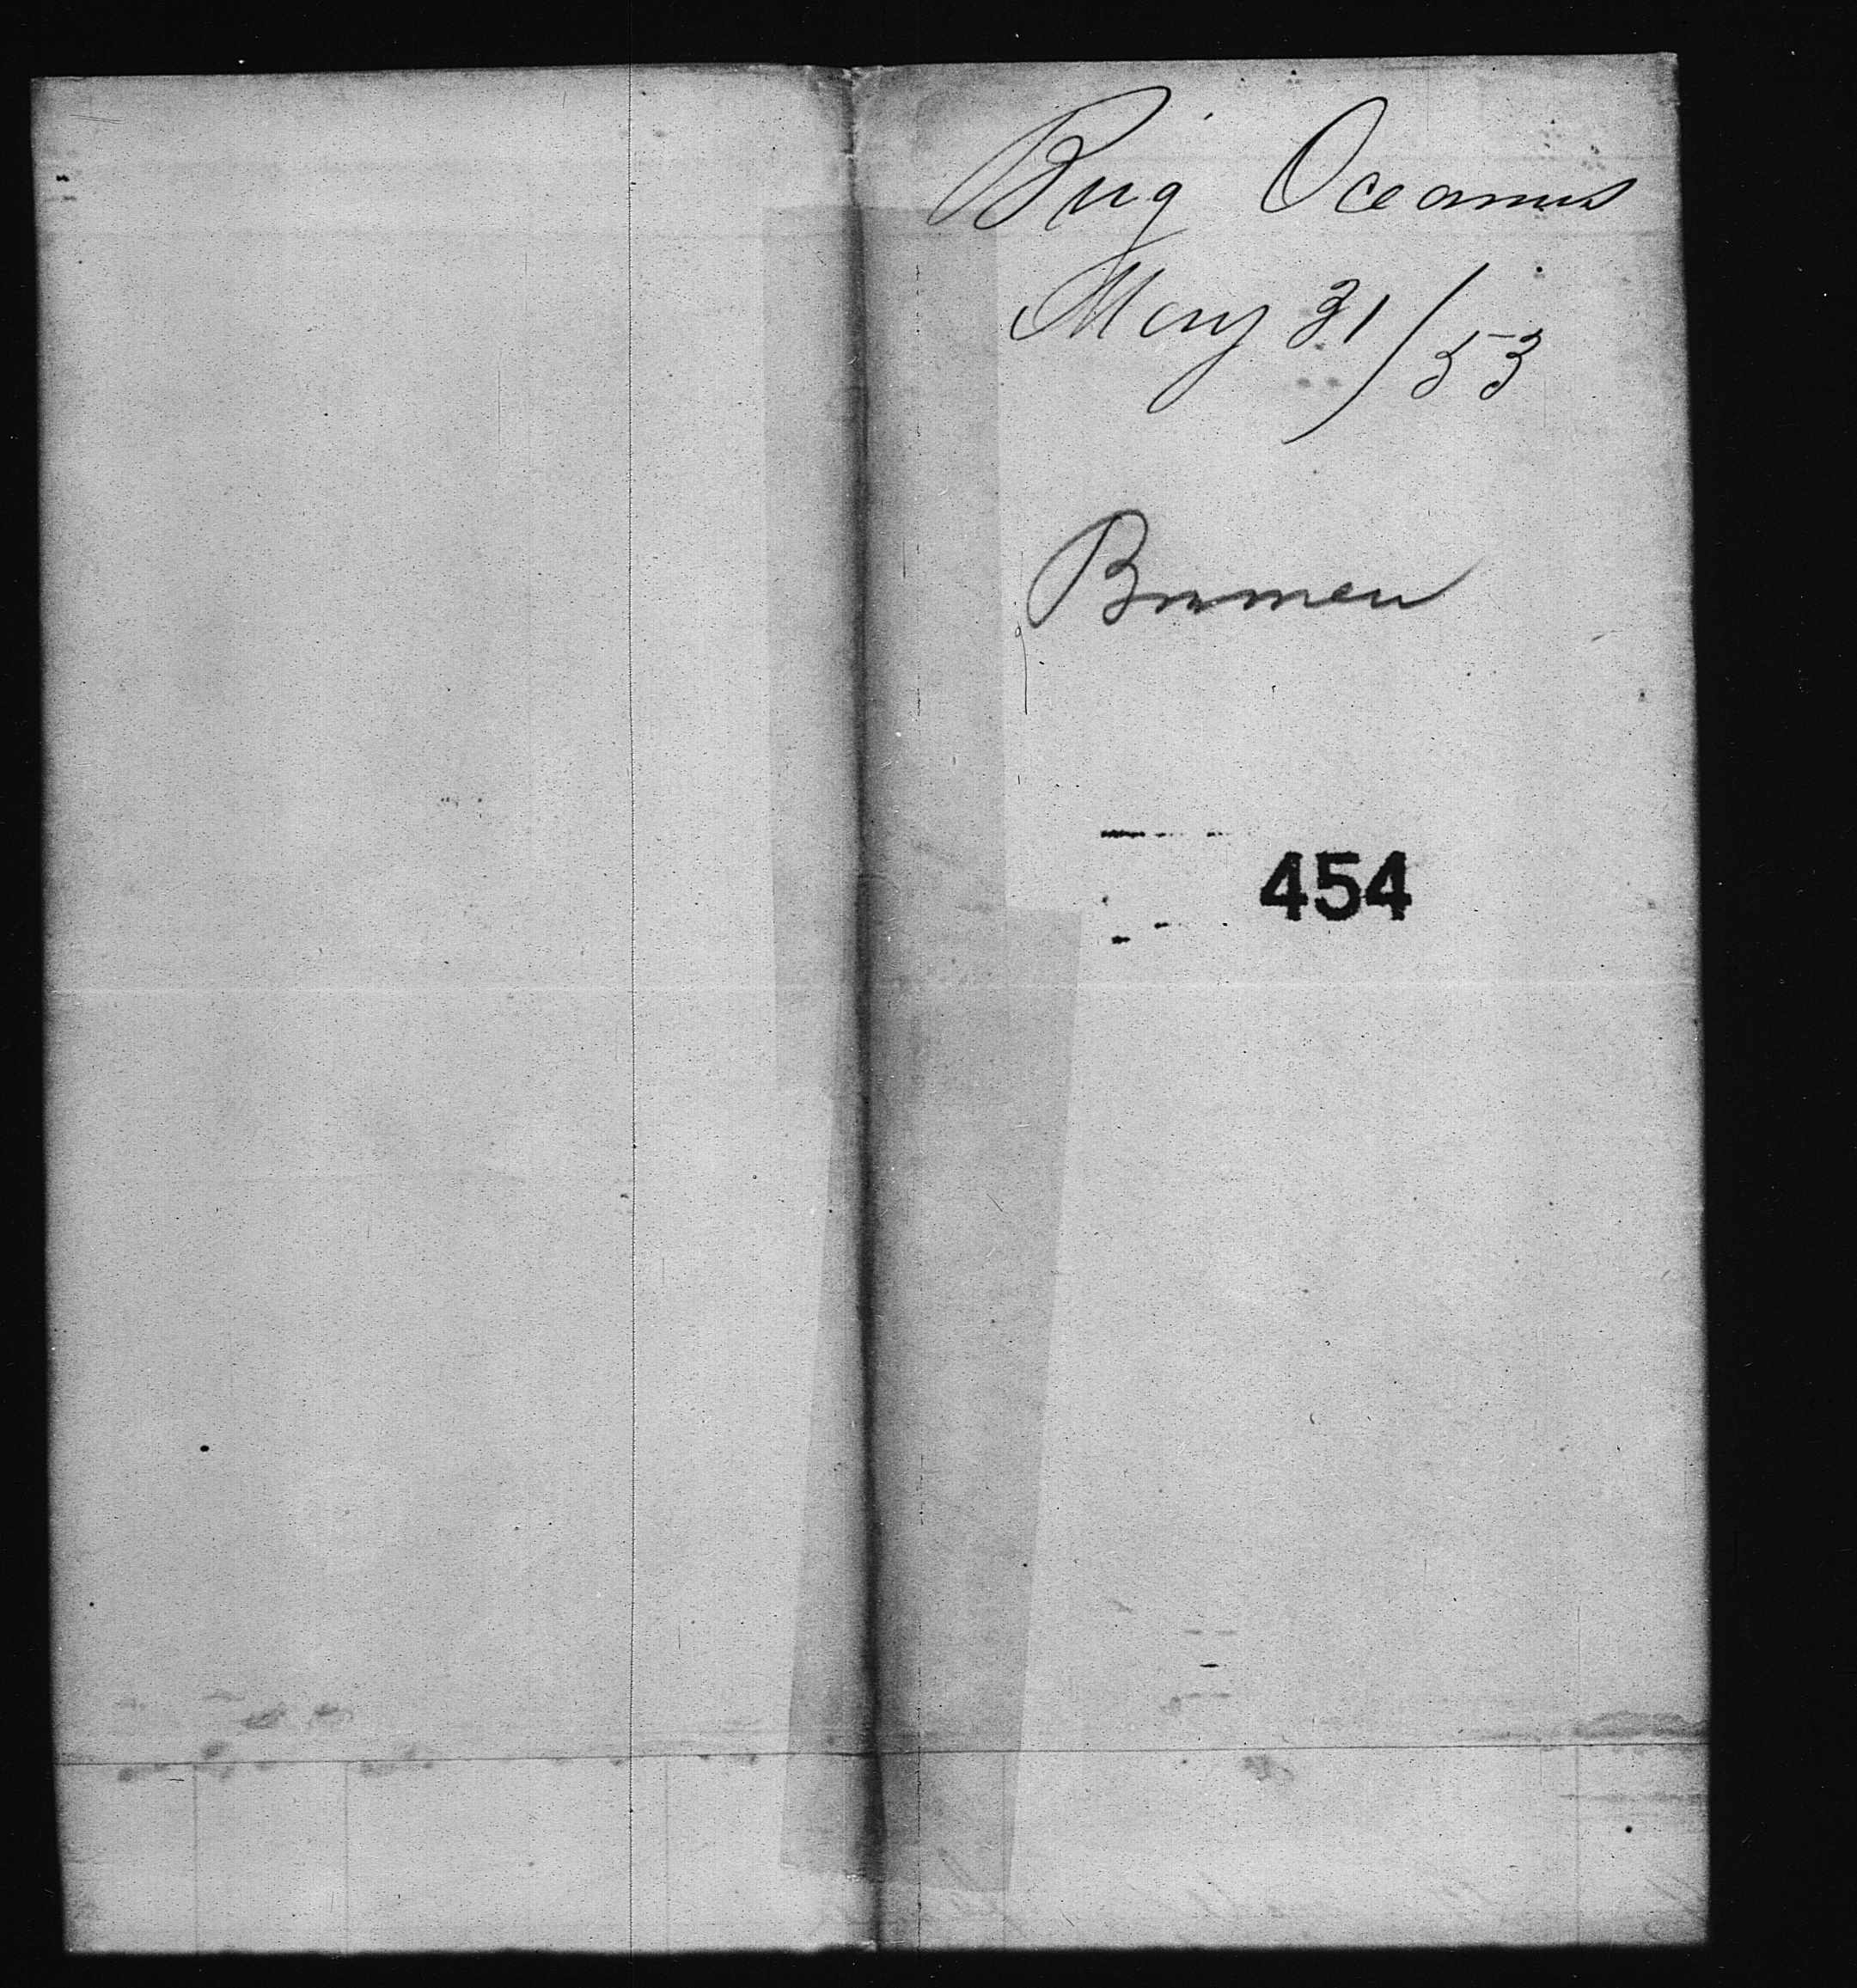 Brig Oceanus
May 31/53
Bremen
454